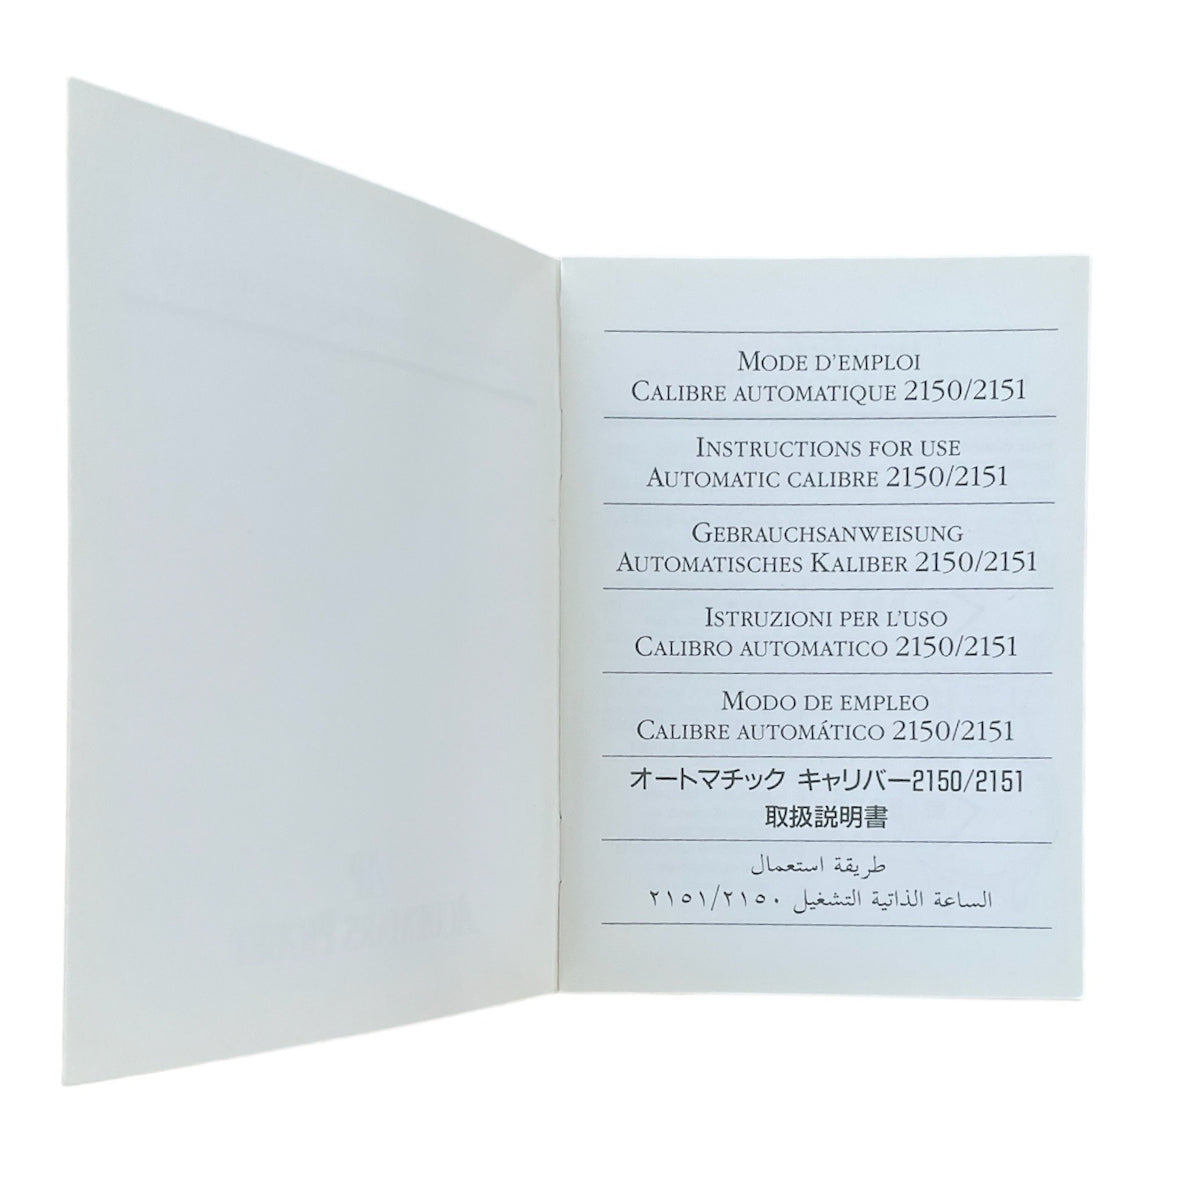 MODE D'EMPLOI
CALIBRE AUTOMATIQUE 2150/2151
INSTRUCTIONS FOR USE
AUTOMATIC CALIBRE 2150/2151
GEBRAUCHSANWEISUNG
AUTOMATISCHES KALIBER 2150/2151
ISTRUZIONI PER L'USO
CALIBRO AUTOMATICO 2150/2151
MODO DE EMPLEO
CALIBRE AUTOMÁTICO 2150/2151
オートマチック キャリバー2150/2151
取扱説明書
طريقة استعمال
الساعة الذاتية التشغيل ٢١٥١/٢١٥٠